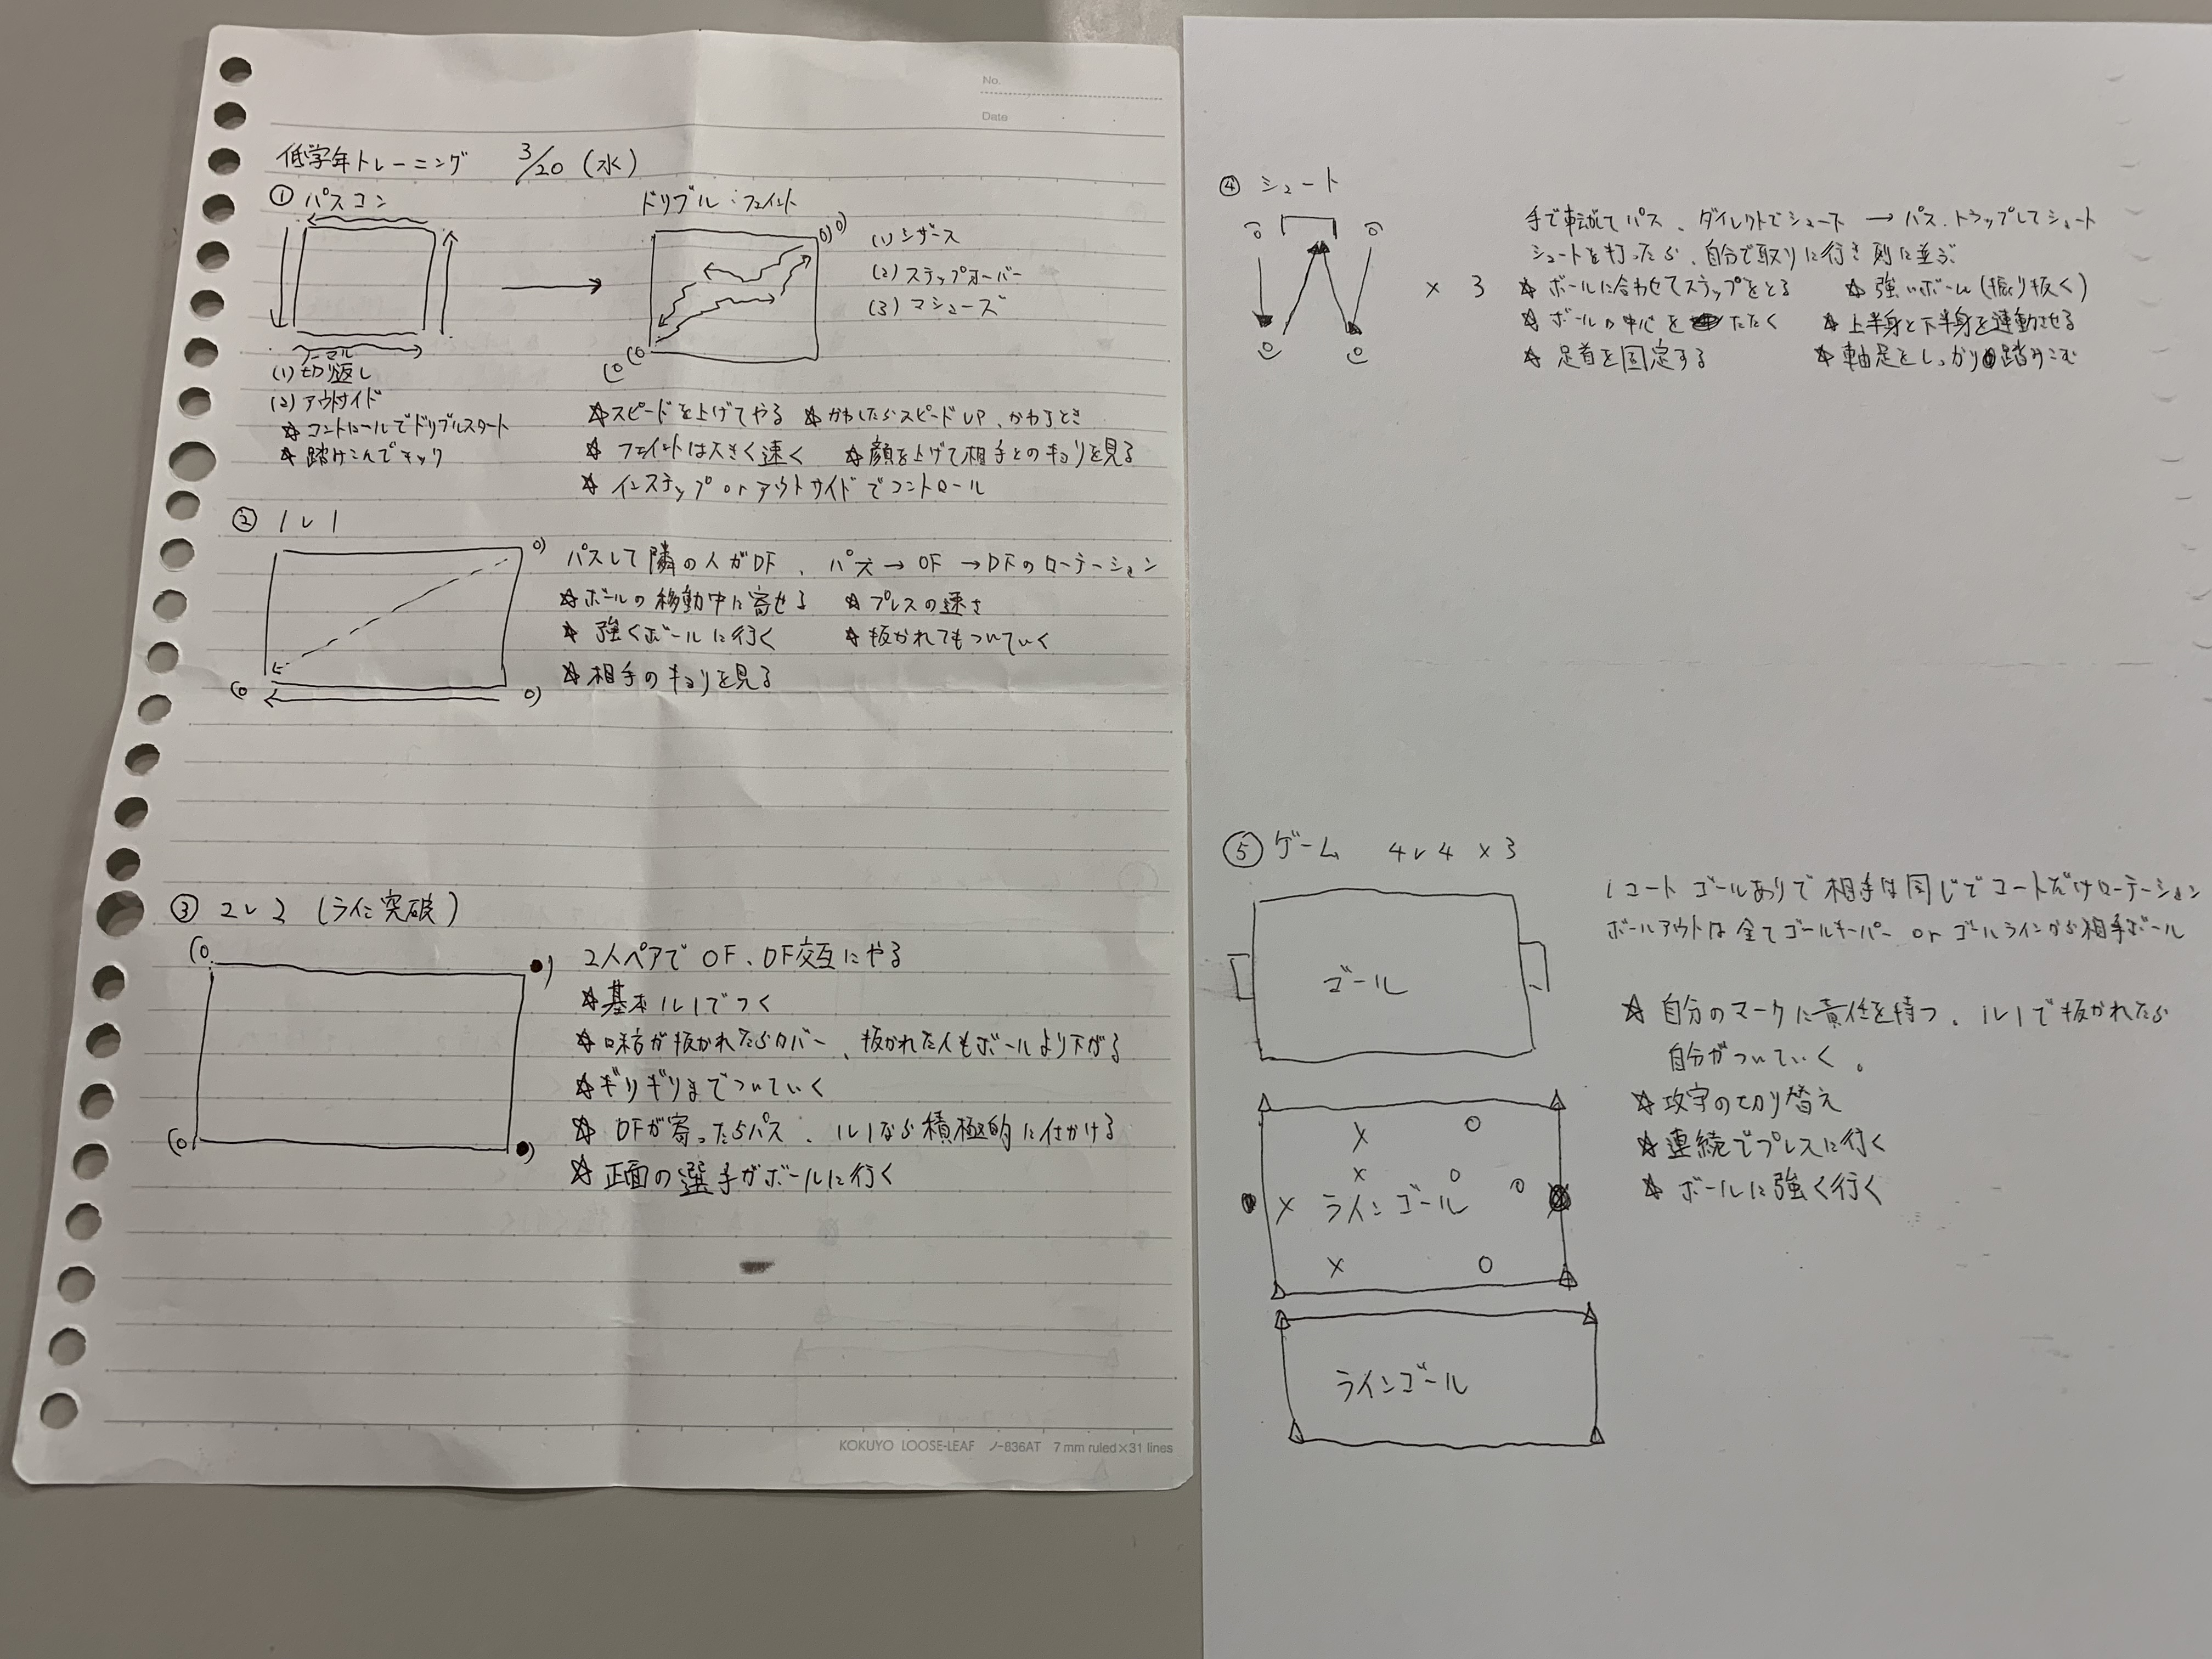 No.
Date
低学年トレーニング 3/20 (水)
① パスコン
ドリブル:フェイント
(1) シザース
(2) ステップオーバー
(3) マシューズ
ノーマル
(1) 切り返し
(2) アウトサイド
☆ コントロールでドリブルスタート
☆ 踏みこんでキック
☆スピードを上げてやる ☆かわしたらスピードUP、かわすとき
☆ フェイントは大きく速く ☆顔を上げて相手とのキョリを見る
☆ インステップ or アウトサイドでコントロール
② 1v1
パスして隣の人がDF、パス→OF→DFのローテーション
☆ボールの移動中に寄せる ☆プレスの速さ
☆ 強くボールに行く ☆抜かれてもついていく
☆相手のキョリを見る
③ 2v2 (ライン突破)
2人ペアでOF、DF交互にやる
☆基本1v1でつく
☆味方が抜かれたらカバー、抜かれた人もボールより下がる
☆ギリギリまでついていく
☆ DFが寄ったらパス、1v1なら積極的に仕かける
☆ 正面の選手がボールに行く
KOKUYO LOOSE-LEAF ノ-836AT 7 mm ruled×31 lines
④ シュート
× 3
手で転がしてパス、ダイレクトでシュート → パス、トラップしてシュート
シュートを打ったら、自分で取りに行き列に並ぶ
☆ ボールに合わせてステップをとる ☆ 強いボール(振り抜く)
☆ ボールの中心をたたく ☆ 上半身と下半身を連動させる
☆ 足首を固定する ☆ 軸足をしっかり踏みこむ
⑤ ゲーム 4v4 × 3
1コート ゴールありで相手は同じでコートだけローテーション
ボールアウトは全てゴールキーパー or ゴールラインから相手ボール
ゴール
☆ 自分のマークに責任を持つ、1v1で抜かれたら
自分がついていく。
☆攻守の切り替え
☆連続でプレスに行く
☆ ボールに強く行く
ラインゴール
ラインゴール